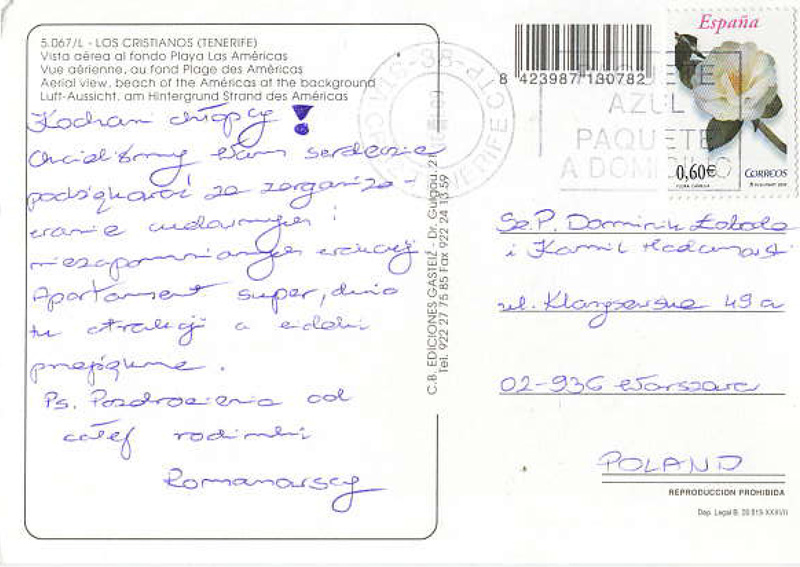 5.067/L - LOS CRISTIANOS (TENERIFE)
Vista aérea al fondo Playa Las Américas
Vue aérienne, au fond Plage des Américas
Aerial view, beach of the Américas at the background
Luft-Aussicht, am Hintergrund Strand des Américas
Kochani chłopcy!
Chcieliśmy Wam serdecznie
podziękować za zorganizo-
wanie cudownych i
niezapomnianych wakacji
Apartament super, dużo
tu atrakcji a widoki
przepiękne.
Ps. Pozdrowienia od
całej rodzinki
Romanowscy
C.B. EDICIONES GASTEIZ - Dr. Guigou, 21
Tel. 922 27 75 85 Fax 922 24 13 59
8 423987 130782
España
0,60€
CORREOS
PAQUETE
AZUL
PAQUETE
A DOMICILIO
CTP-38-STA
TENERIFE
Sz.P. Dominik Łoboda
i Kamil
ul. Klarysewska 49a
02-936 Warszawa
POLAND
REPRODUCCION PROHIBIDA
Dep. Legal B.